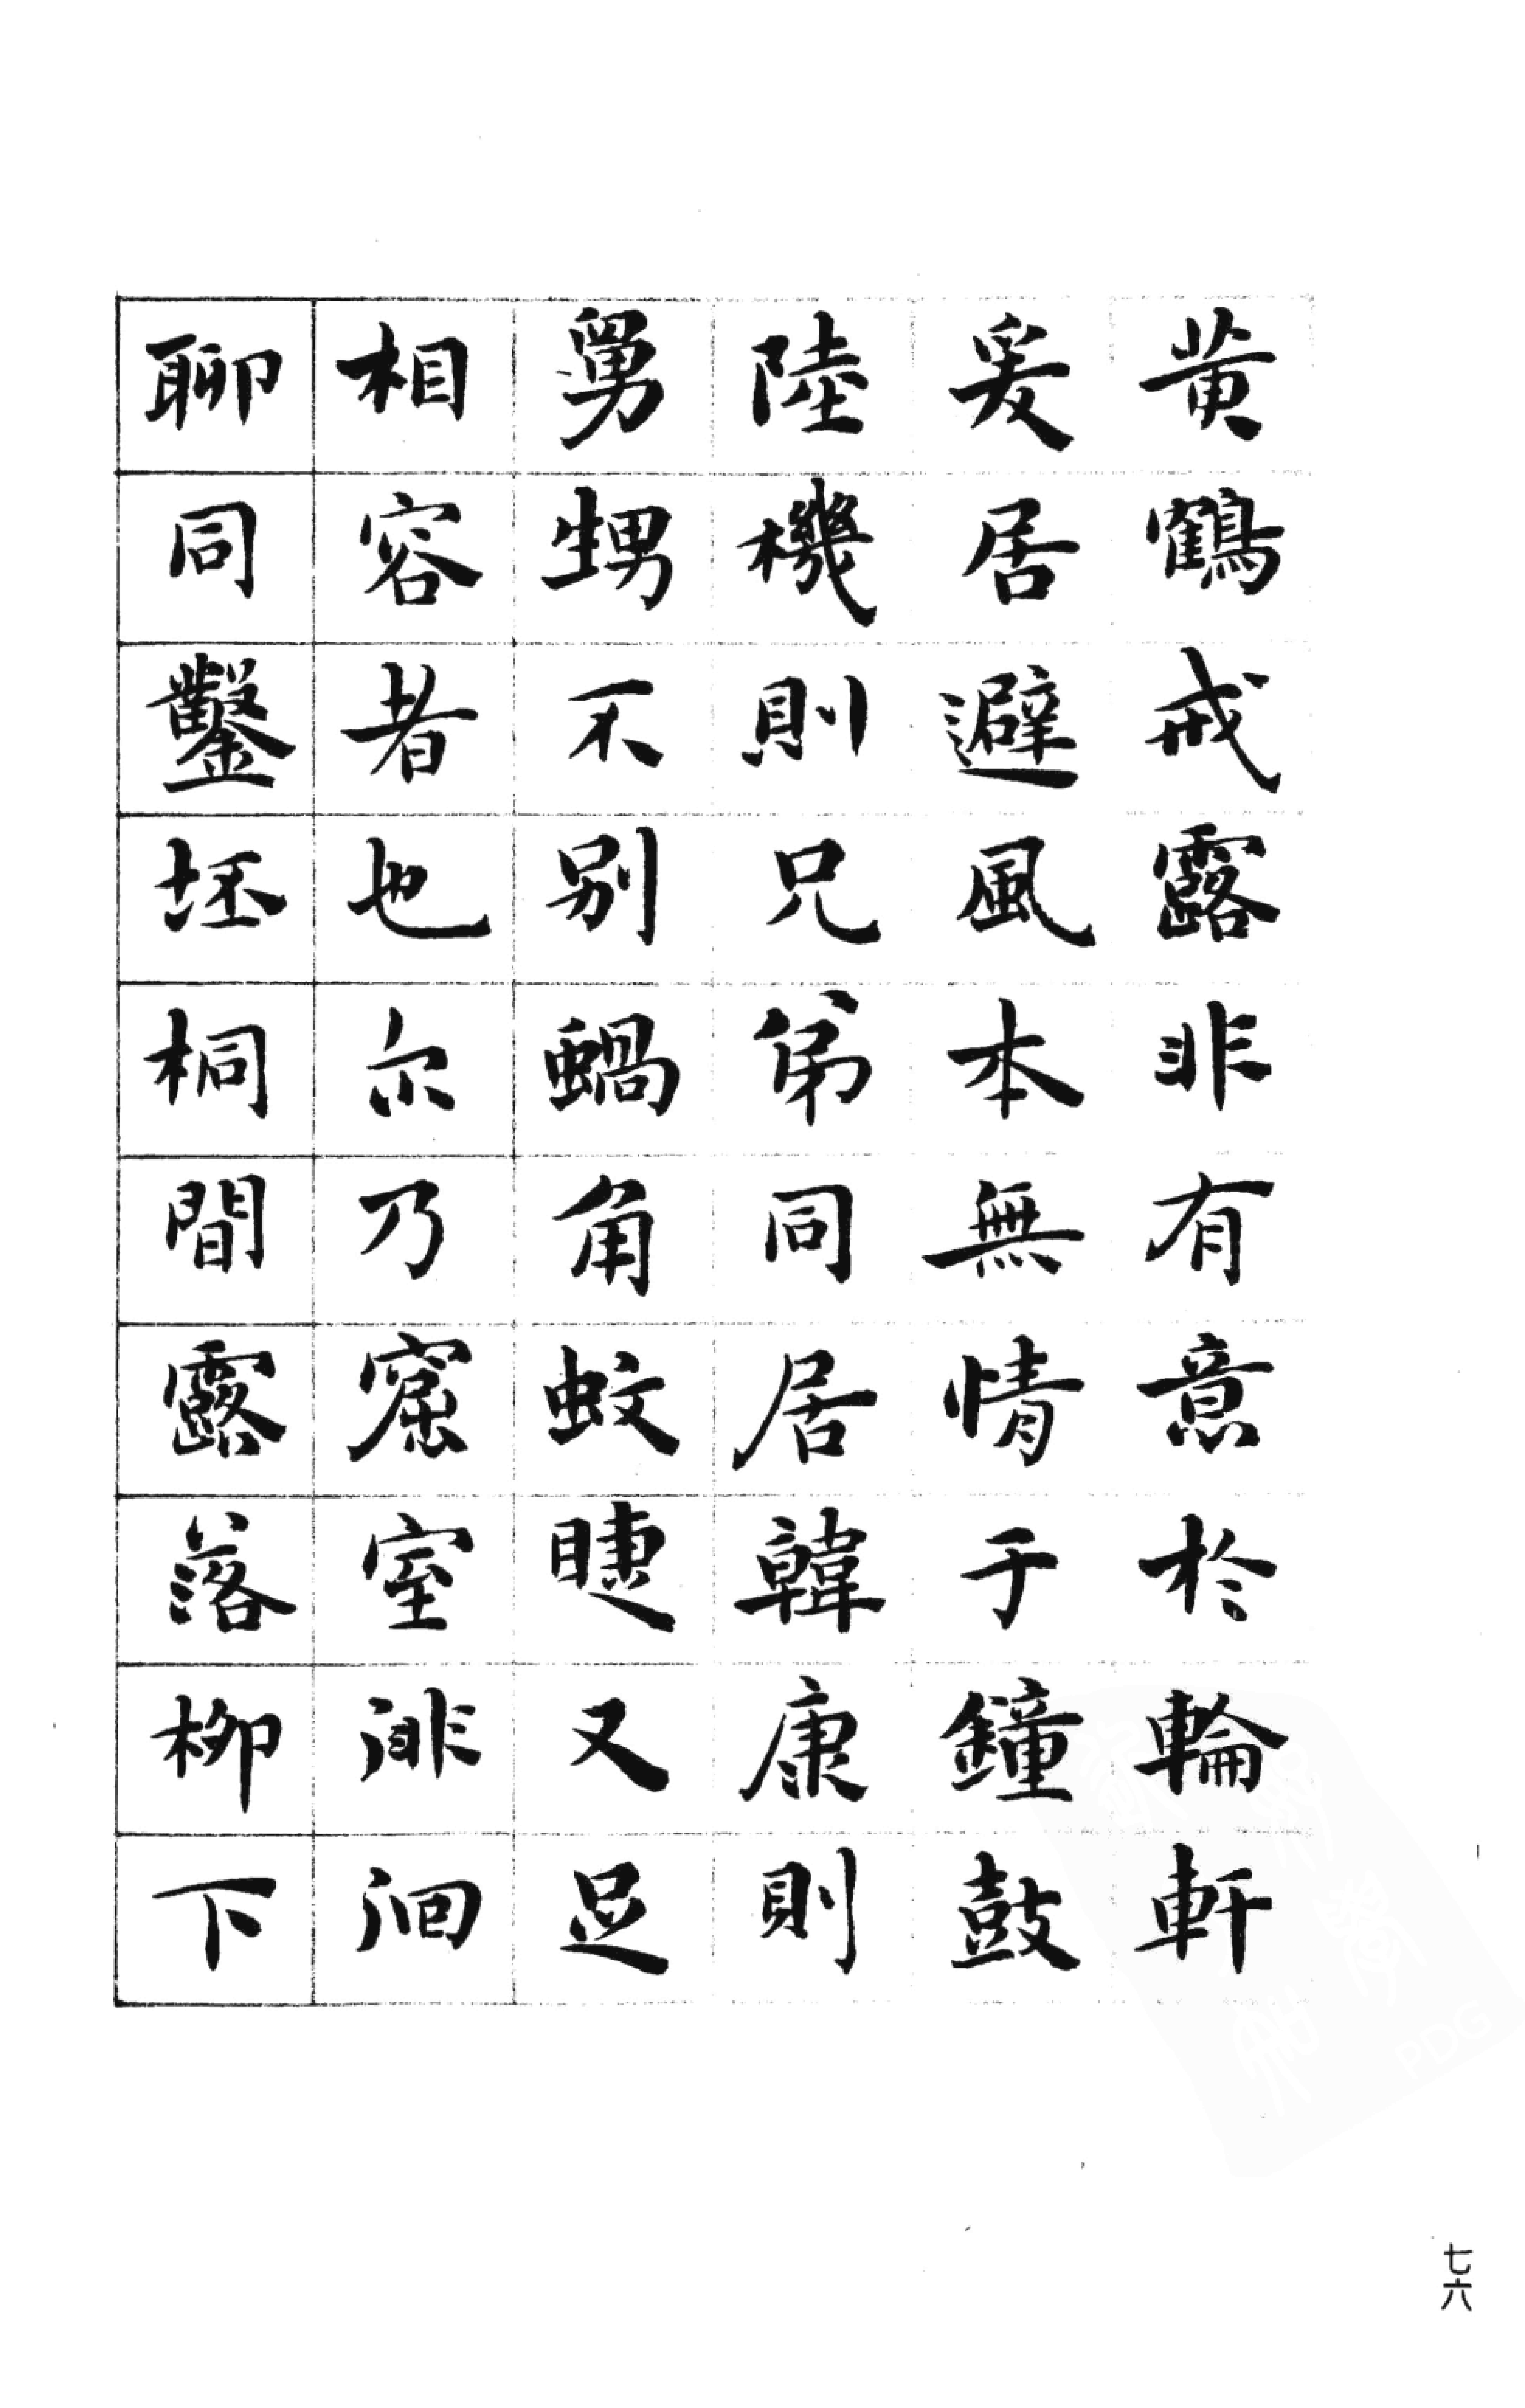 黄鶴戒露非有意於輪軒
爰居避風本無情于鐘鼓
陸機則兄弟同居韓康則
舅甥不别蝸角蚊睫又足
相容者也尔乃窟室徘徊
聊同鑿坯桐間露落柳下
七六